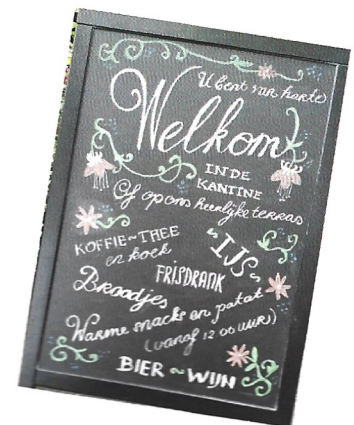 U bent van harte
Welkom
IN DE
KANTINE
Of op ons heerlijke terras
KOFFIE~THEE
en koek
"IJS"
FRISDRANK
Broodjes
Warme snacks en patat
(vanaf 12 00 uur)
BIER ~ WIJN